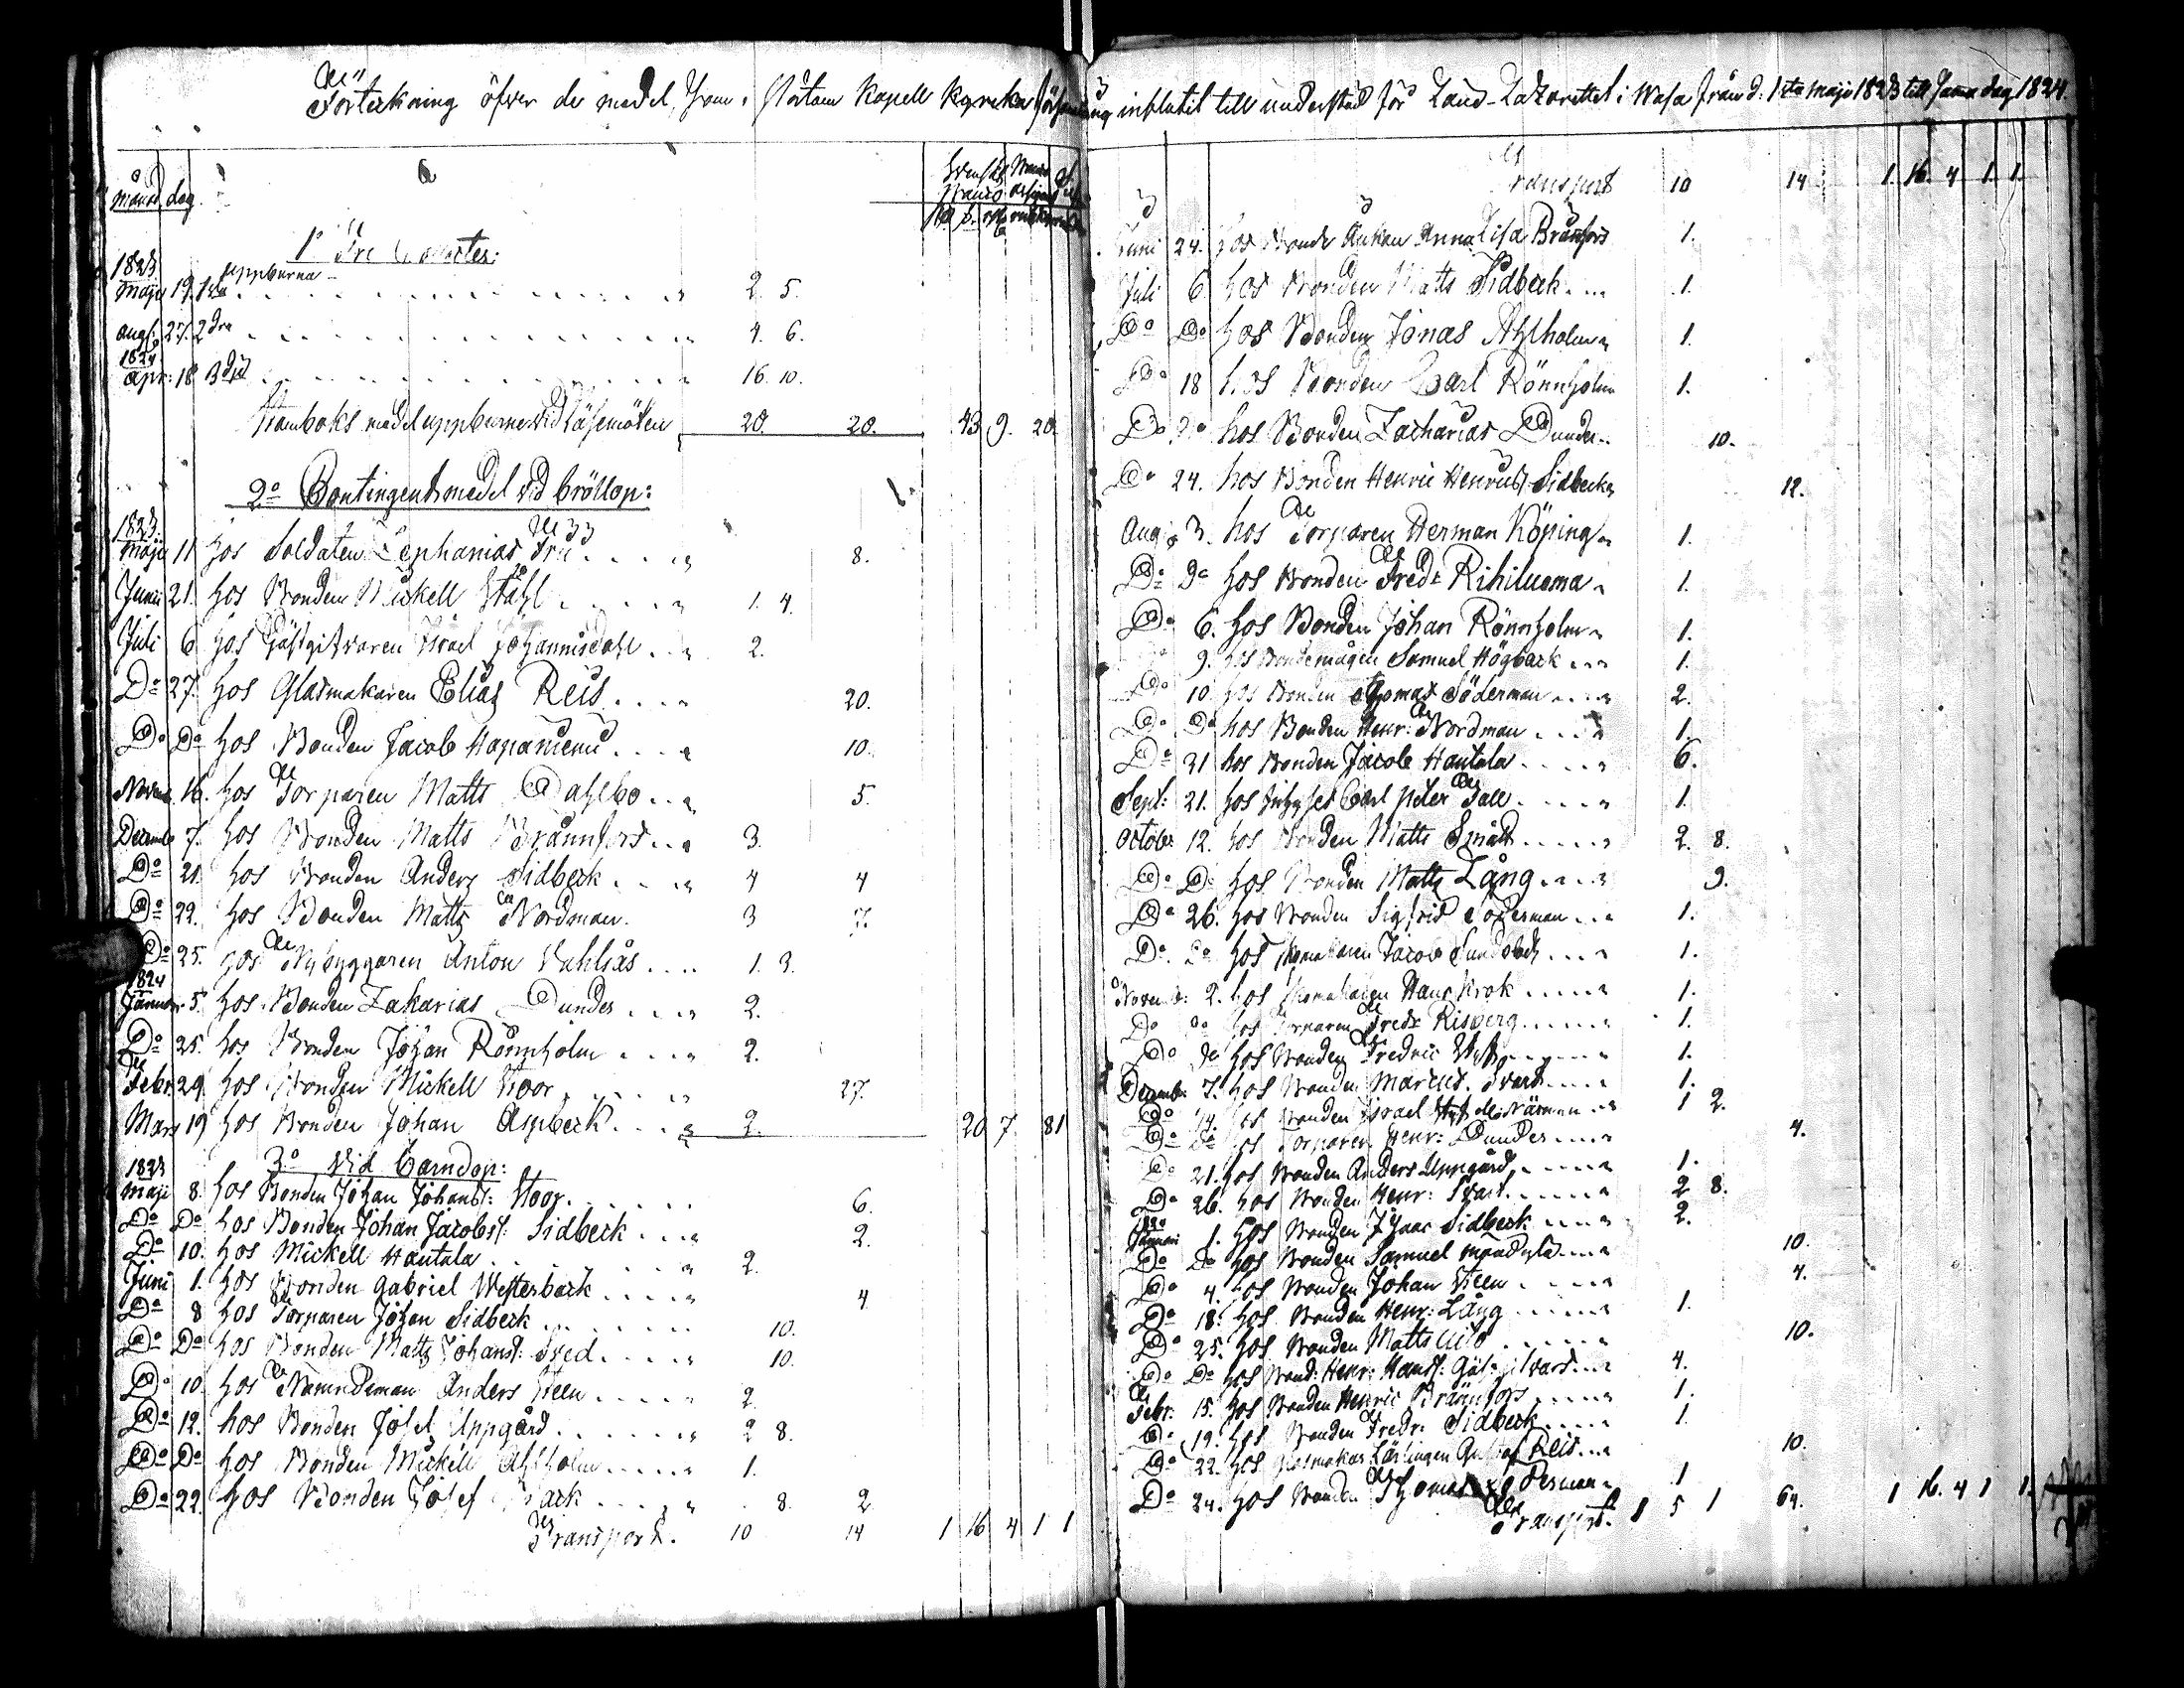 Förteckning öfver de medel, som i Kapell Kyrka församling influtit till understöd för Land-Lazarettet i Wasa från d: 1sta Maji 1823 till samma dag 1824.
månad dag
1o
1823 uppburna
Maji 19. 1sta 2. 5.
Aug: 27. 2dra 4. 6.
1824
Apr: 18 3dje 16. 10.
Stamboks medel uppburne vid Läsemöten 20. 20. 43 9. 20.
2o Contingent medel vid bröllop:
1823.
Maji 11 hos Soldaten Zephanias Fri 8.
Junii 21. hos Bonden Mickell Ståhl 1. 4.
Juli 6 hos Gästgifvaren Israel Johannisdahl 2.
Do 27. hos Glasmakaren Elias Reis 20.
Do Do hos Bonden Jacob Hapaniemi 10.
Novemb. 16. hos Torparen Matts Dahlbo 5.
Decemb 7. hos Bonden Matts Brännfors 3.
Do 21. hos Bonden Anders Sidbeck 4 4
Do 22. hos Bonden Matts Nordman 3 7.
Do 25. hos Nybyggaren Anton 1. 3.
1824
Januar. 5. hos Bonden Zakarias Dunder 2.
Do 25. hos Bonden Johan Rönnholm 2.
Febr: 29. hos Bonden Mickell Stoor 27.
Mars 19 hos Bonden Johan Aspbeck 2. 20 7. 81
1823 3o Vid barndop:
Maji 8. hos Bonden Johan Johans: Stoor 6.
Do Do hos Bonden Johan Jacobs: Sidbeck 2.
Do 10. hos Mickell Hautala 2.
Juni 1. hos Bonden Gabriel Westerback 4
Do 8 hos Torparen Johan Sidbeck 10.
Do Do hos Bonden Matts Johans: Fred 10.
Do 10. hos Nämndeman Anders Steen 2.
Do 12. hos Bonden Josef Uppgård 2 8.
Do Do hos Bonden Mickell Ahlholm 1.
Do 22. hos Bonden Josef 8. 2
Transport. 10 14 1 16 4 1 1
Transport 10 14 1. 16. 4 1. 1.
Juni 24. hos Bonde Änkan Anna Lisa Brännfors 1.
Juli 6. hos Bonden Matts Sidbeck 1.
Do Do hos Bonden Jonas Ahlholm 1.
Do 18 hos Bonden Carl Rönnholm 1.
Do Do hos Bonden Zacharias Dunder 10.
Do 24. hos Bonden Henric Henrics: Sidbeck 12.
Aug: 3. hos Torparen Herman Köping 1.
Do Do hos Bonden Fredr. Rihiluoma 1.
Do 6. hos Bonden Johan Rönnholm 1.
Do 9. hos Bondemågen Samuel Högback 1.
Do 10. hos Bonden Thomas Söderman 2.
Do Do hos Bonden Henr: Nordman 1.
Do 31 hos Bonden Jacob Hautala 6.
Sept: 21. hos Carl Peter Tall 1.
Octob: 12. hos Bonden Matts Smått 2. 8.
Do Do hos Bonden Matts Lång 9.
Do 26. hos Bonden Sigfrid Söderman 1.
Do Do hos Skomakaren Jacob Sundback 1.
Novemb: 2. hos Skomakaren Hans Krok 1.
Do Do hos Torparen Fredr Risberg 1.
Do Do hos Bonden Fredric 1.
Decemb: 7. hos Bonden Marcus Svart 1.
Do 14. hos Bonden Israel 1 2.
Do Do hos Torparen Henr: Dunder 4.
Do 21. hos Bonden Anders Uppgård 1.
Do 26. hos Bonden Henr: Svart 2 8.
Januari 1. hos Bonden Isaac Sidbeck 2.
Do Do hos Bonden Samuel 10.
Do 4. hos Bonden Johan Steen 4.
Do 18. hos Bonden Henr: Lång 1.
Do 25. hos Bonden Matts 10.
Do Do hos Bond: Henr: Hans: 4.
Febr: 15. hos Bonden Henric Brännfors 1.
Do 19. hos Bonden Fredr. Sidbeck 1.
Do 22. hos Glasmakar Lärlingen Gustaf Reis 10.
Do 24. hos Bonden Thomas 1
Transport. 1 5 1 64. 1 16. 4 1 1.